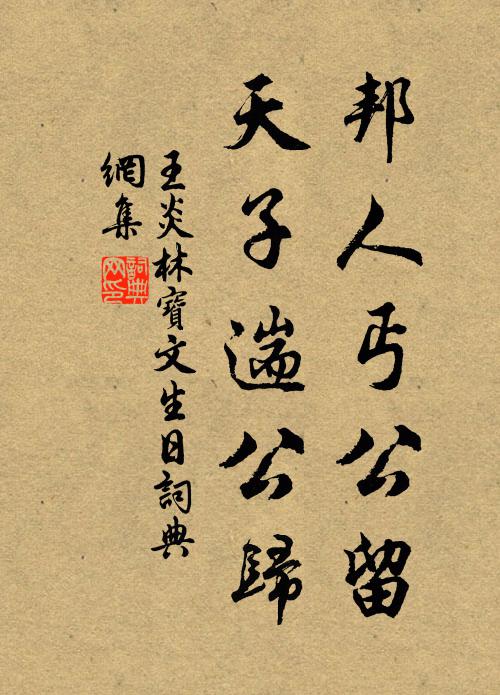 邦人丐公留
天子遄公歸
王炎林寶文生日詞典
網集
詞典
网印